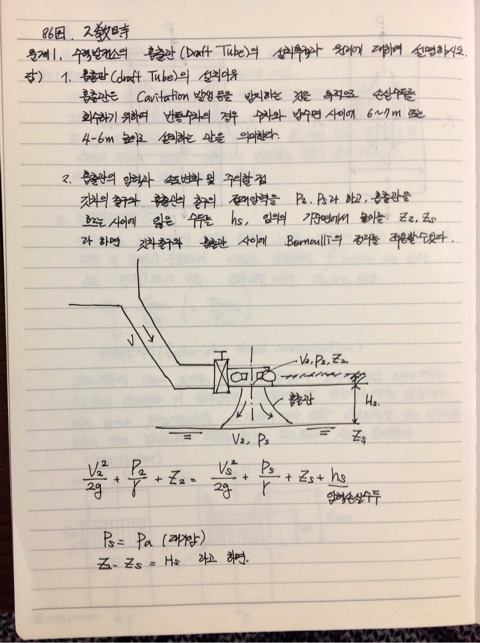 86回. 2교시
문제1. 수력발전소의 흡출관 (Draft Tube)의 설치목적과 원리에 대하여 설명하시오.
답) 1. 흡출관 (draft Tube)의 설치이유
흡출관은 Cavitation 발생 등을 방지하는 것을 목적으로 손실수두를
회수하기 위하여 반동수차의 경우 수차와 방수면 사이에 6~7m 또는
4-6m 높이로 설치하는 관을 의미한다.
2. 흡출관의 압력과 속도변화 및 주의할 점
깃차의 출구와 흡출관의 출구의 절대압력을 P2, Ps라 하고, 흡출관을
흐르는 사이에 잃은 수두를 hs, 임의의 기준면에서 높이를 Z2, Zs
라 하면 깃차출구와 흡출관 사이에 Bernoulli의 정리를 적용할 수 있다.
V2, P2, Z2
흡출관
Hs.
Zs
Vs, Ps
V2²/2g + P2/γ + Z2 = Vs²/2g + Ps/γ + Zs + hs
압력손실수두
Ps = Pa (대기압)
Z2 - Zs = Hs 라고 하면.